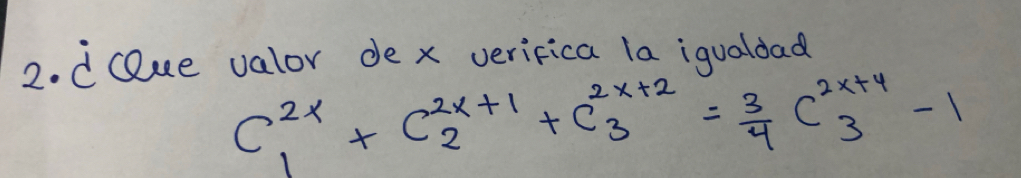 2. ¿Que valor de x verifica la igualdad
C₁²ˣ + C₂²ˣ⁺¹ + C₃²ˣ⁺² = 3/4 C₃²ˣ⁺⁴ - 1